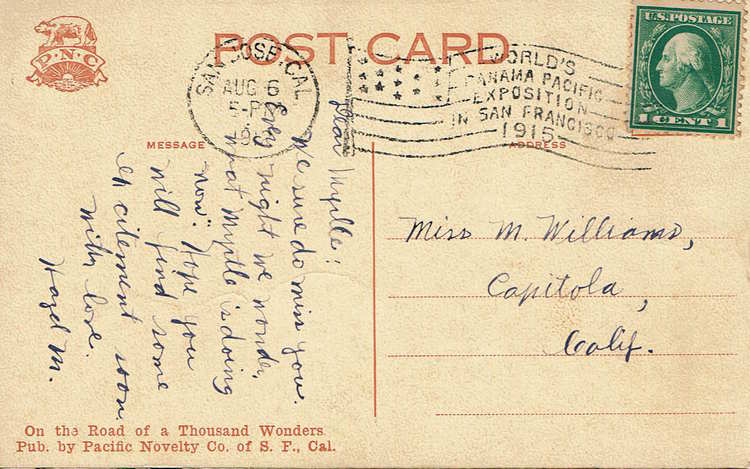 P·N·C
POST CARD
SAN JOSE, CAL.
AUG 6
5-P
WORLD'S
PANAMA PACIFIC
EXPOSITION
IN SAN FRANCISCO
1915
U.S. POSTAGE
1 CENT 1
MESSAGE
ADDRESS
Dear Myrtle:
We sure do miss you.
Every night we wonder,
"what Myrtle is doing
now". Hope you
will find some
excitement soon.
With love.
Hazel M.
Miss M. Williams,
Capitola,
Calif.
On the Road of a Thousand Wonders
Pub. by Pacific Novelty Co. of S. F., Cal.